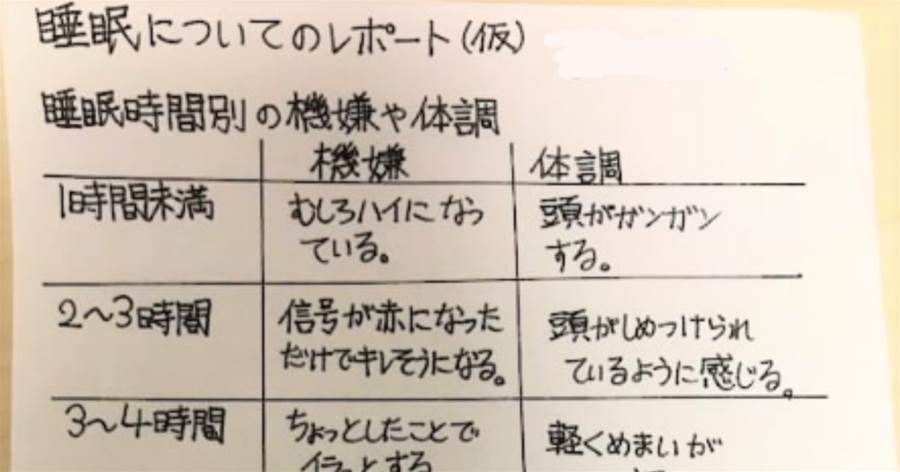 睡眠についてのレポート(仮)
睡眠時間別の機嫌や体調
機嫌 体調
1時間未満 むしろハイになっ 頭がガンガン
ている。 する。
2〜3時間 信号が赤になった 頭がしめつけられ
だけでキレそうになる。 ているように感じる。
3〜4時間 ちょっとしたことで 軽くめまいが
イラっとする